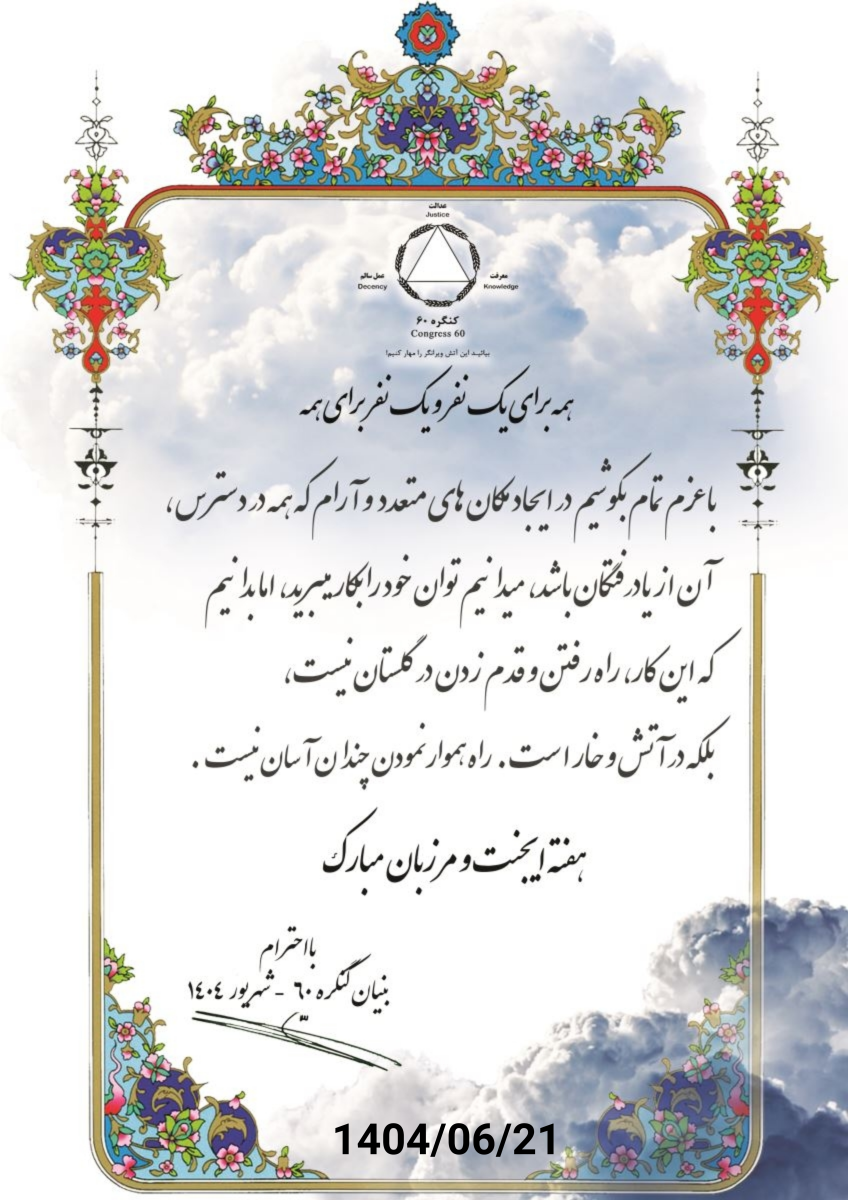 عدالت
Justice
عمل سالم
Decency
معرفت
Knowledge
کنگره ۶۰
Congress 60
بیائید این آتش ویرانگر را مهار کنیم!
همه برای یک نفر و یک نفر برای همه
با عزم تمام بکوشیم در ایجاد مکان های متعدد و آرام که همه در دسترس،
آن از یاد رفتگان باشد، میدانیم توان خود را بکار میبرید، اما بدانیم
که این کار، راه رفتن و قدم زدن در گلستان نیست،
بلکه در آتش و خار است. راه هموار نمودن چندان آسان نیست.
هفته ایجنت و مرزبان مبارک
با احترام
بنیان کنگره ٦٠ - شهریور ١٤٠٤
1404/06/21